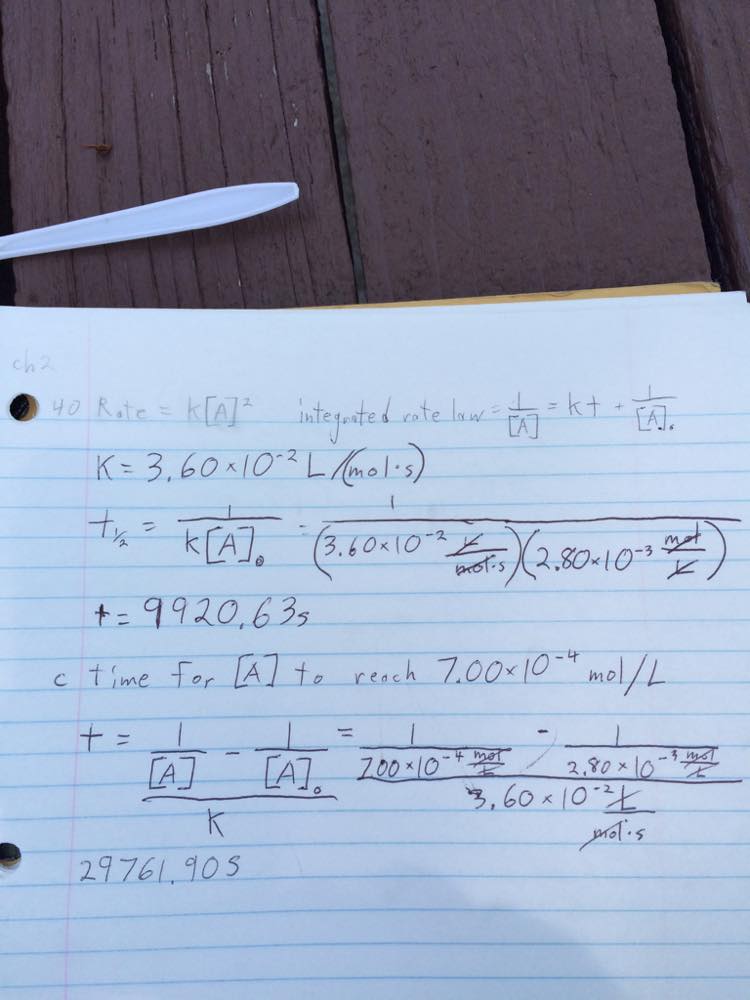 ch2
40 Rate = K[A]² integrated rate law = 1/[A] = kt + 1/[A]₀
K = 3.60×10⁻² L/(mol·s)
t½ = 1/(K[A]₀) = 1/((3.60×10⁻² L/(mol·s))(2.80×10⁻³ mol/L))
t = 9920.63s
c time for [A] to reach 7.00×10⁻⁴ mol/L
t = (1/[A] - 1/[A]₀)/K = (1/(7.00×10⁻⁴ mol/L) - 1/(2.80×10⁻³ mol/L))/(3.60×10⁻² L/(mol·s))
29761.90s